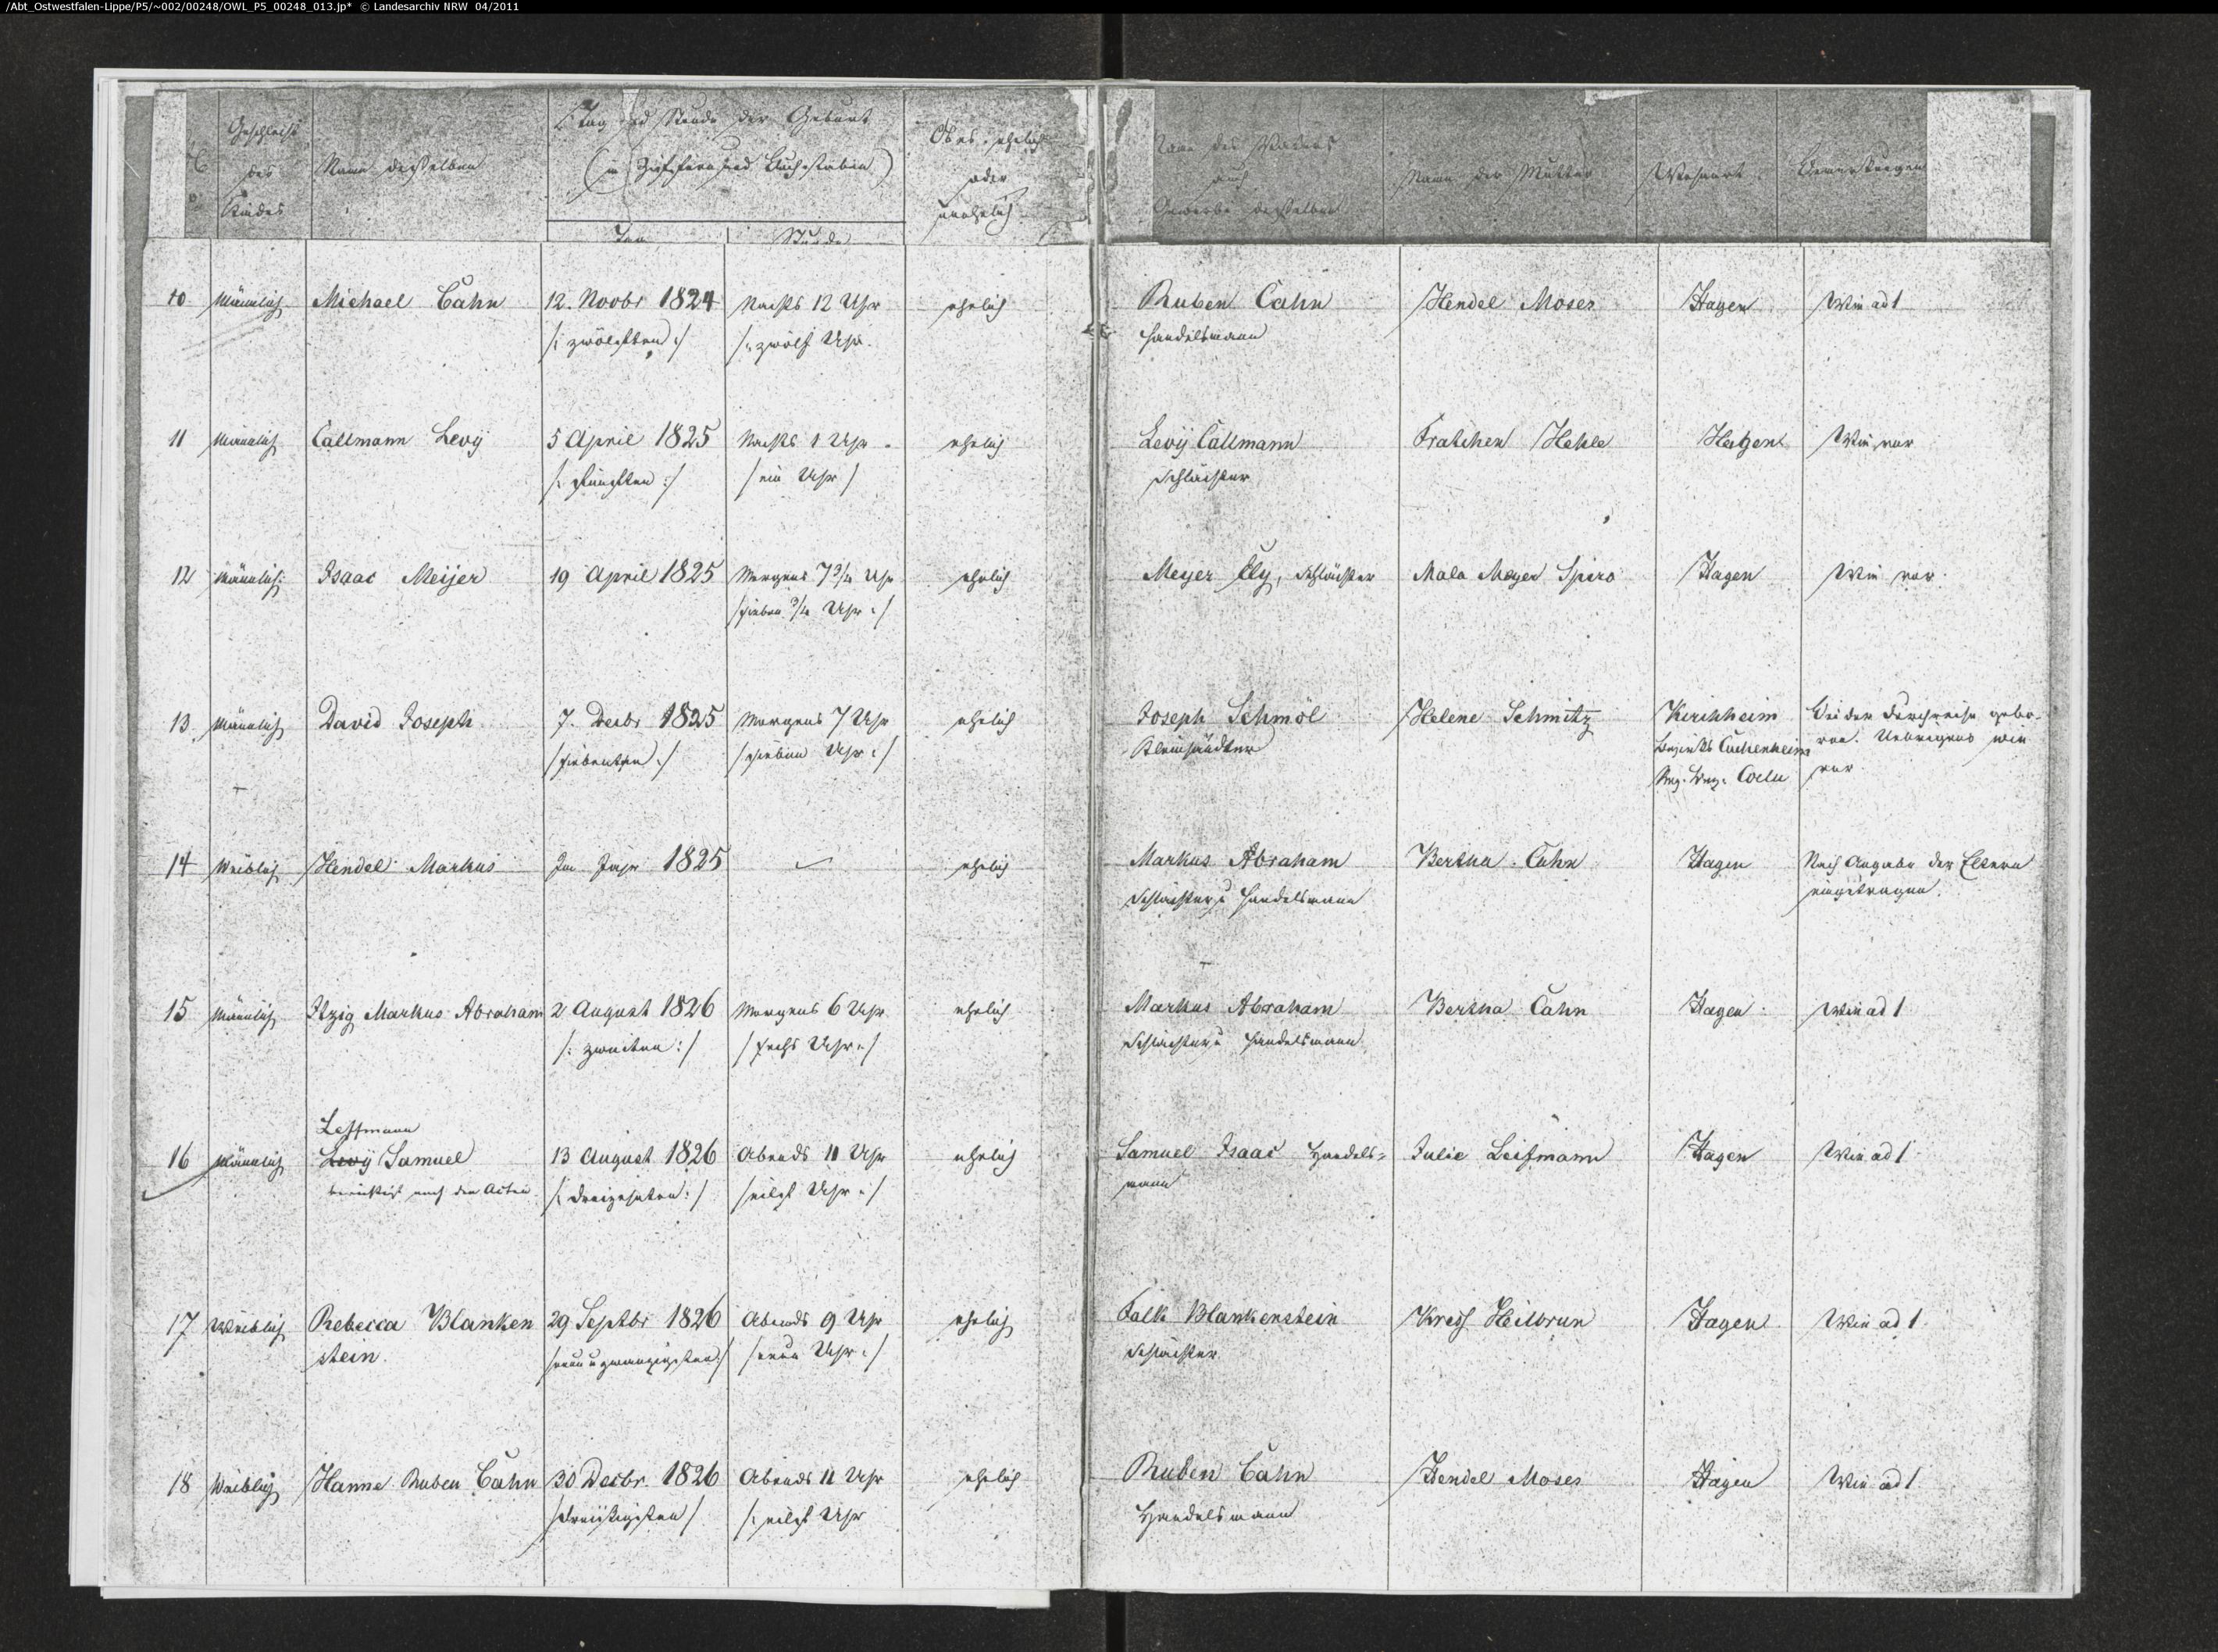 /Abt_Ostwestfalen-Lippe/P5/~002/00248/OWL_P5_00248_013.jp* © Landesarchiv NRW 04/2011
Geschlecht des Kindes
Name desselben
Tag und Stunde der Geburt
(in Ziffern und Buchstaben)
Tag
Stunde
Ob es ehelich oder unehelich
Name des Vaters auch Gewerbe desselben
Name der Mutter
Wohnort
Bemerkungen
10 Männlich Michael Cahn 12. Novbr 1824 Nachts 12 Uhr ehelich Ruben Cahn Hendel Moses Hagen Wie ad 1
/: zwölften :/ /: zwölf Uhr. Handelsmann
11 Männlich Callmann Levÿ 5 April 1825 Nachts 1 Uhr ehelich Levÿ Callmann Fratchen Hehle Hagen Wie vor
/: fünften :/ / ein Uhr / Schlächter
12 Männlich Isaac Meijer 19 April 1825 Morgens 7 3/4 Uhr ehelich Meyer Ely, Schlächter Mala Meyer Spiro Hagen Wie vor.
/ sieben 3/4 Uhr :/
13 Männlich David Joseph 7. Decbr 1825 Morgens 7 Uhr ehelich Joseph Schmöl Helene Schmitz Kirchheim Bei der Durchreise gebo-
/ siebenten :/ / sieben Uhr :/ Kleinhändler Bezirks Cuchenheim ren. Uebrigens wie
Reg. Bez. Coeln vor.
14 Weiblich Hendel Markus Im Jahr 1825 — ehelich Markus Abraham Bertha Cahn Hagen Nach Angabe der Eltern
Schlächter u Handelsmann eingetragen.
15 Männlich Itzig Markus Abraham 2 August 1826 Morgens 6 Uhr ehelich Markus Abraham Bertha Cahn Hagen Wie ad 1
/: zweiten :/ / sechs Uhr :/ Schlächter u Handelsmann
Leffmann
16 Männlich Levÿ Samuel 13 August 1826 Abends 11 Uhr ehelich Samuel Isaac Handels= Julie Leifmann Hagen Wie ad 1
berichtigt nach den Acten. /: dreizehnten :/ / eilf Uhr :/ mann
17 Weiblich Rebecca Blanken 29 Septbr 1826 Abends 9 Uhr ehelich Falk Blankenstein Heilbrun Hagen Wie ad 1.
stein. / neun u zwanzigsten :/ / neun Uhr :/ Schlächter.
18 Weiblich Hanne Ruben Cahn 30 Decbr. 1826 Abends 11 Uhr ehelich Ruben Cahn Hendel Moses Hagen Wie ad 1.
/ dreißigsten / /: eilf Uhr Handelsmann